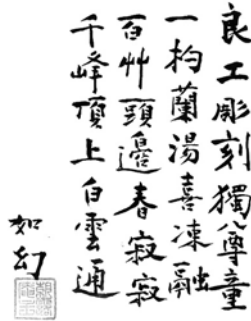 良工彫刻獨尊童
一杓蘭湯喜凍融
百艸頭邊春寂寂
千峰頂上白雲通
如幻